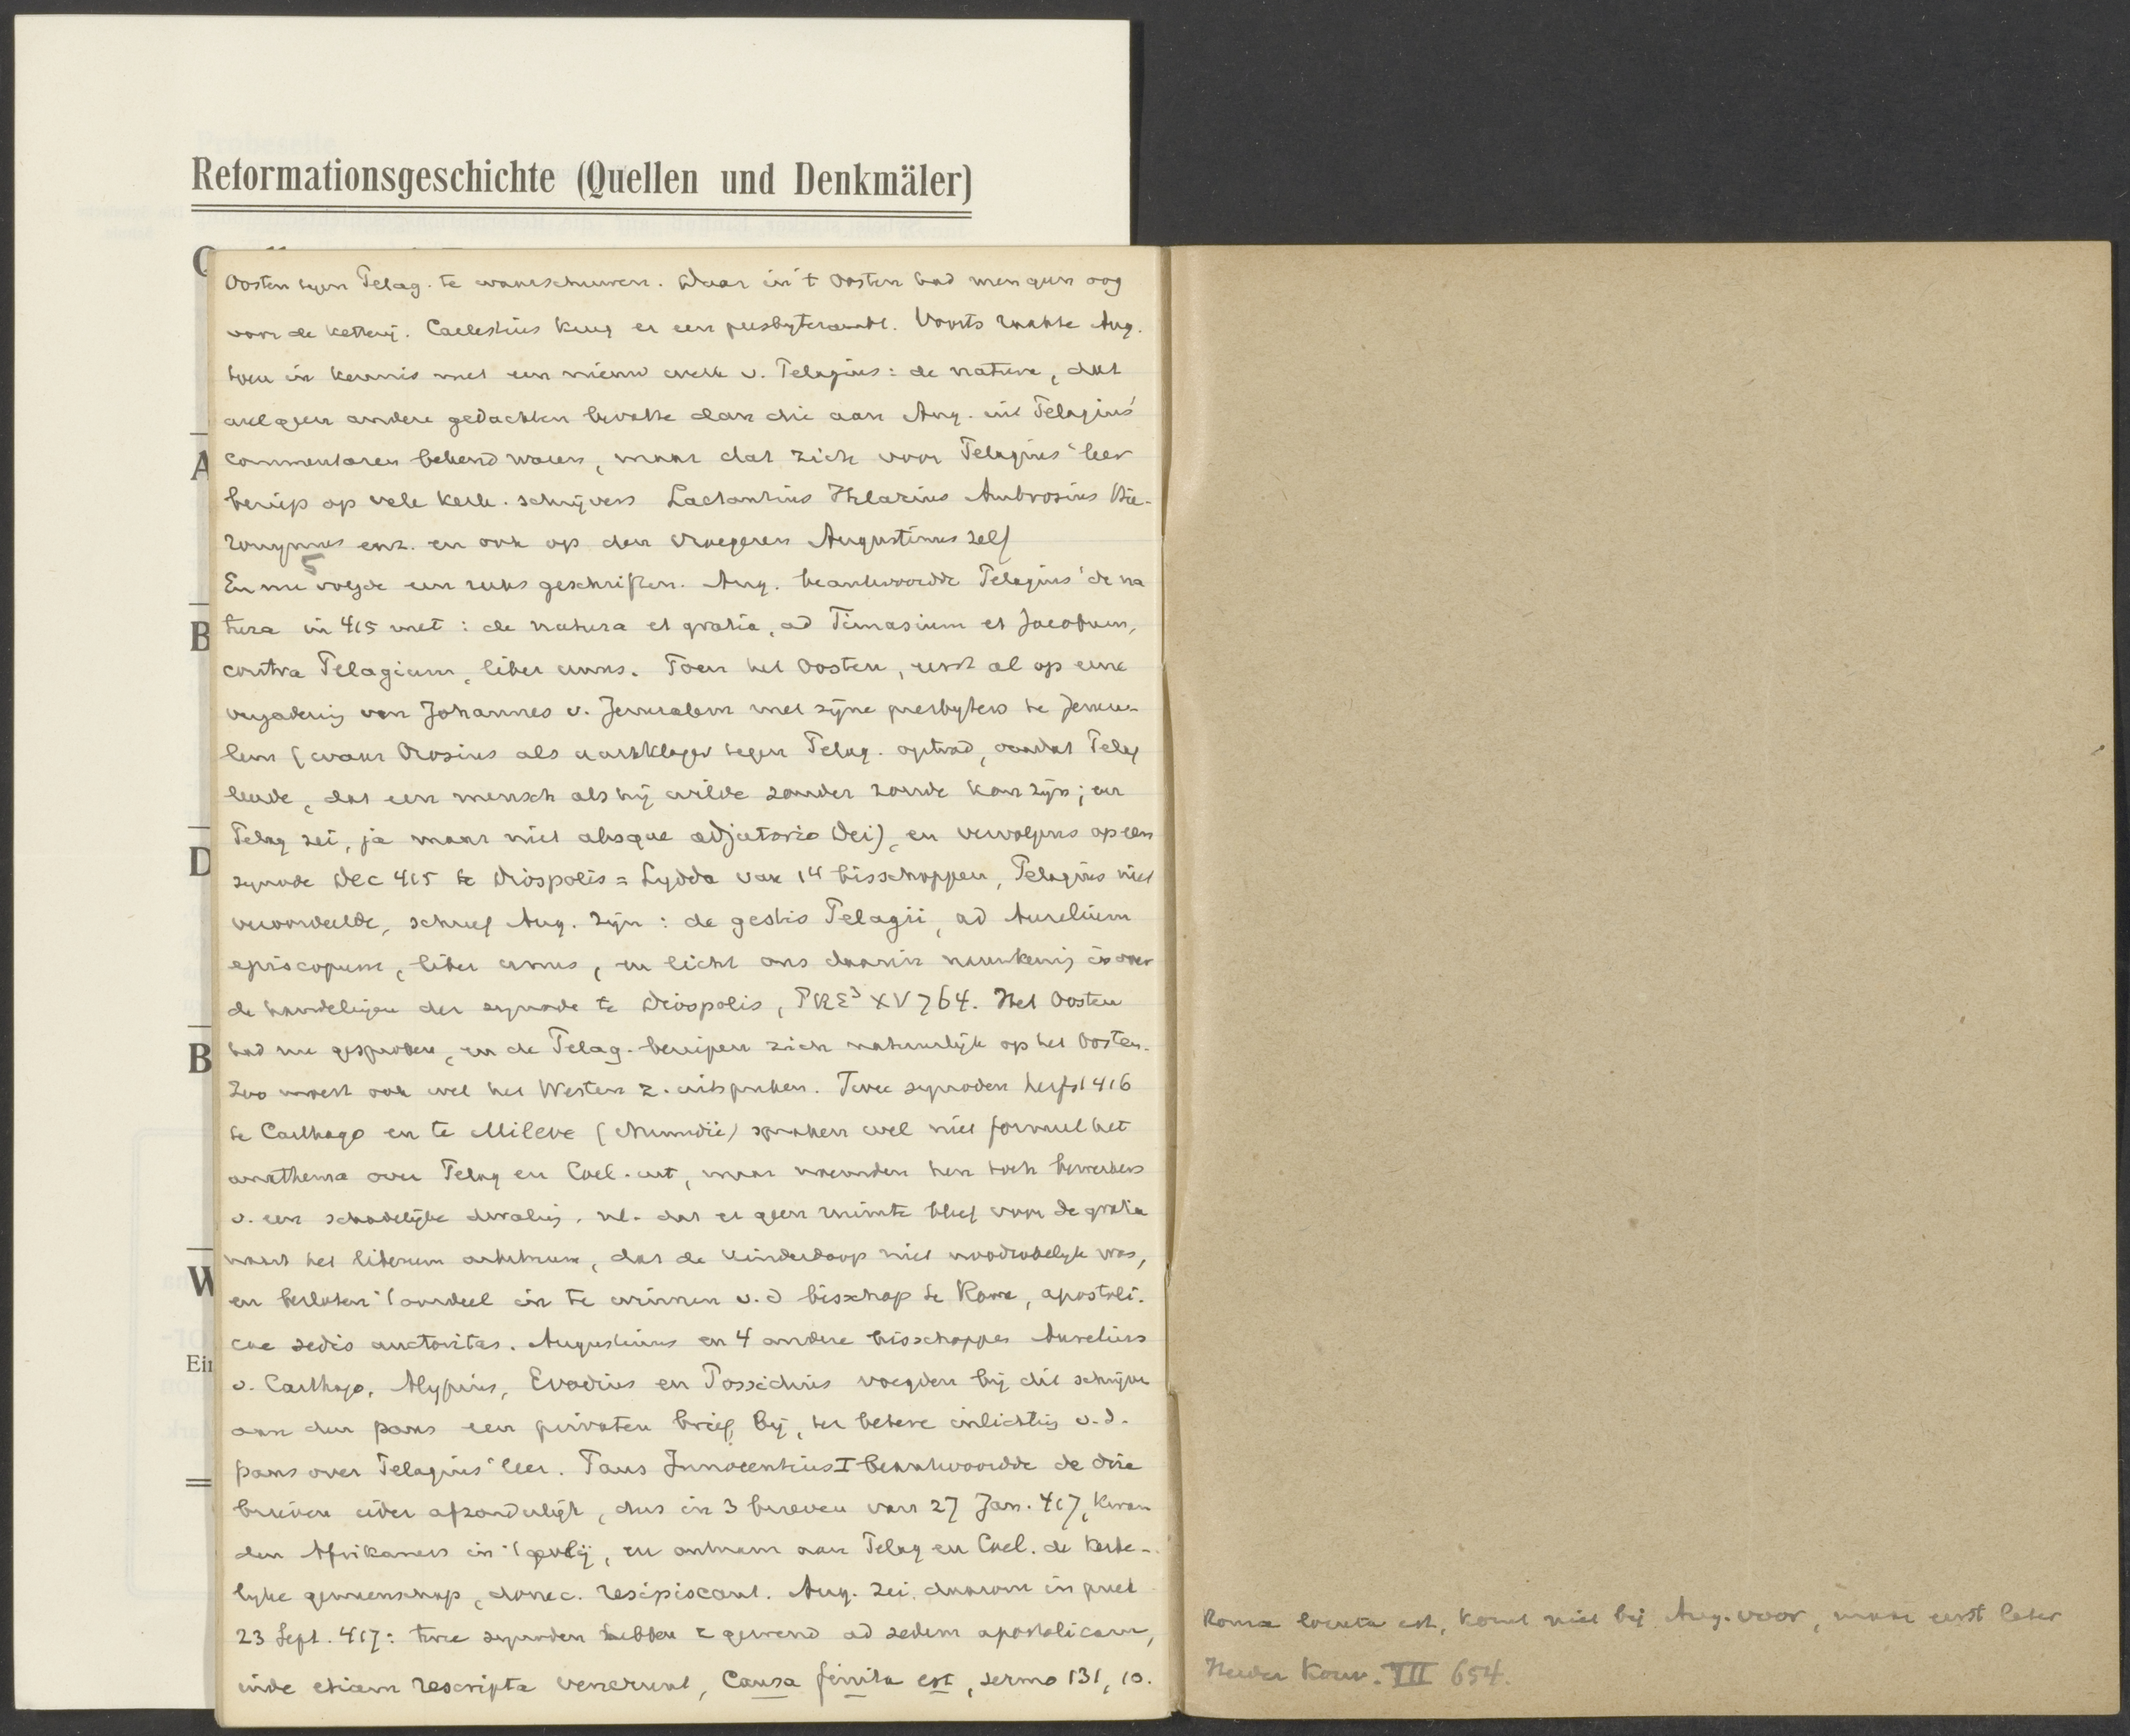 Reformationsgeschichte (Quellen und Denkmäler)
A
B
D
B
W
Ein
Oosten tegen Pelag. te waarschuwen. Maar in 't Oosten had men geen oog
voor de ketterij. Caelestius kreeg er een presbyterambt. Voorts raakte Aug.
toen in kennis met een nieuw werk v. Pelagius: de natura, dat
wel geen andere gedachten bevatte dan die aan Aug. uit Pelagius'
commentaren bekend waren, maar dat zich voor Pelagius' leer
beriep op vele kerk. schrijvers Lactantius Hilarius Ambrosius Hie-
ronymus enz. en ook op den vroegeren Augustinus zelf
5
En nu volgde een reeks geschriften. Aug. beantwoordde Pelagius' de na
tura in 415 met: de natura et gratia, ad Timasium et Jacobum,
contra Pelagium, liber unus. Toen het Oosten, eerst al op eene
vergadering van Johannes v. Jeruzalem met zijne presbyters te Jeru-
lem (waar Orosius als aanklager tegen Pelag. optrad, omdat Pelag
leerde, dat een mensch als hij wilde zonder zonde kon zijn; en
Pelag zei, ja maar niet absque adjutorio Dei), en vervolgens op een
synode Dec 415 te Diospolis = Lydda van 14 bisschoppen, Pelagius niet
veroordeelde, schreef Aug. zijn: de gestis Pelagii, ad Aurelium
episcopum, liber unus, en licht ons daarin nauwkeurig in over
de handelingen der synode te Diospolis, PRE³ XV 764. Het Oosten
had nu gesproken, en de Pelag. beriepen zich natuurlijk op het Oosten.
Zoo moest ook wel het Westen z. uitspreken. Twee synoden herfst 416
te Carthago en te Mileve (Numidië) spraken wel niet formeel het
anathema over Pelag en Cael. uit, maar noemden hen toch bewerkers
v. een schadelijke dwaling, nl. dat er geen ruimte bleef voor de gratia
naast het liberum arbitrium, dat de kinderdoop niet noodzakelijk was,
en besloten 't oordeel in te winnen v. d bisschop te Rome, apostoli-
cae sedis auctoritas. Augustinus en 4 andere bisschoppen Aurelius
v. Carthago, Alypius, Evodius en Possidius voegden bij dit schrijven
aan den paus een privaten brief bij, ter betere inlichting v. d.
paus over Pelagius' leer. Paus Innocentius I beantwoordde de drie
brieven ieder afzonderlijk, dus in 3 brieven van 27 Jan. 417, kwam
den Afrikaners in 't gevlij, en ontnam aan Pelag en Cael. de kerke-
lijke gemeenschap, donec resipiscant. Aug. zei daarom in preek
23 Sept. 417: twee synoden hebben z gewend ad sedem apostolicam,
inde etiam rescripta venerunt, Causa finita est, sermo 131, 10.
Roma locuta est, komt niet bij Aug. voor, maar eerst later
Herder Konv. VII 654.